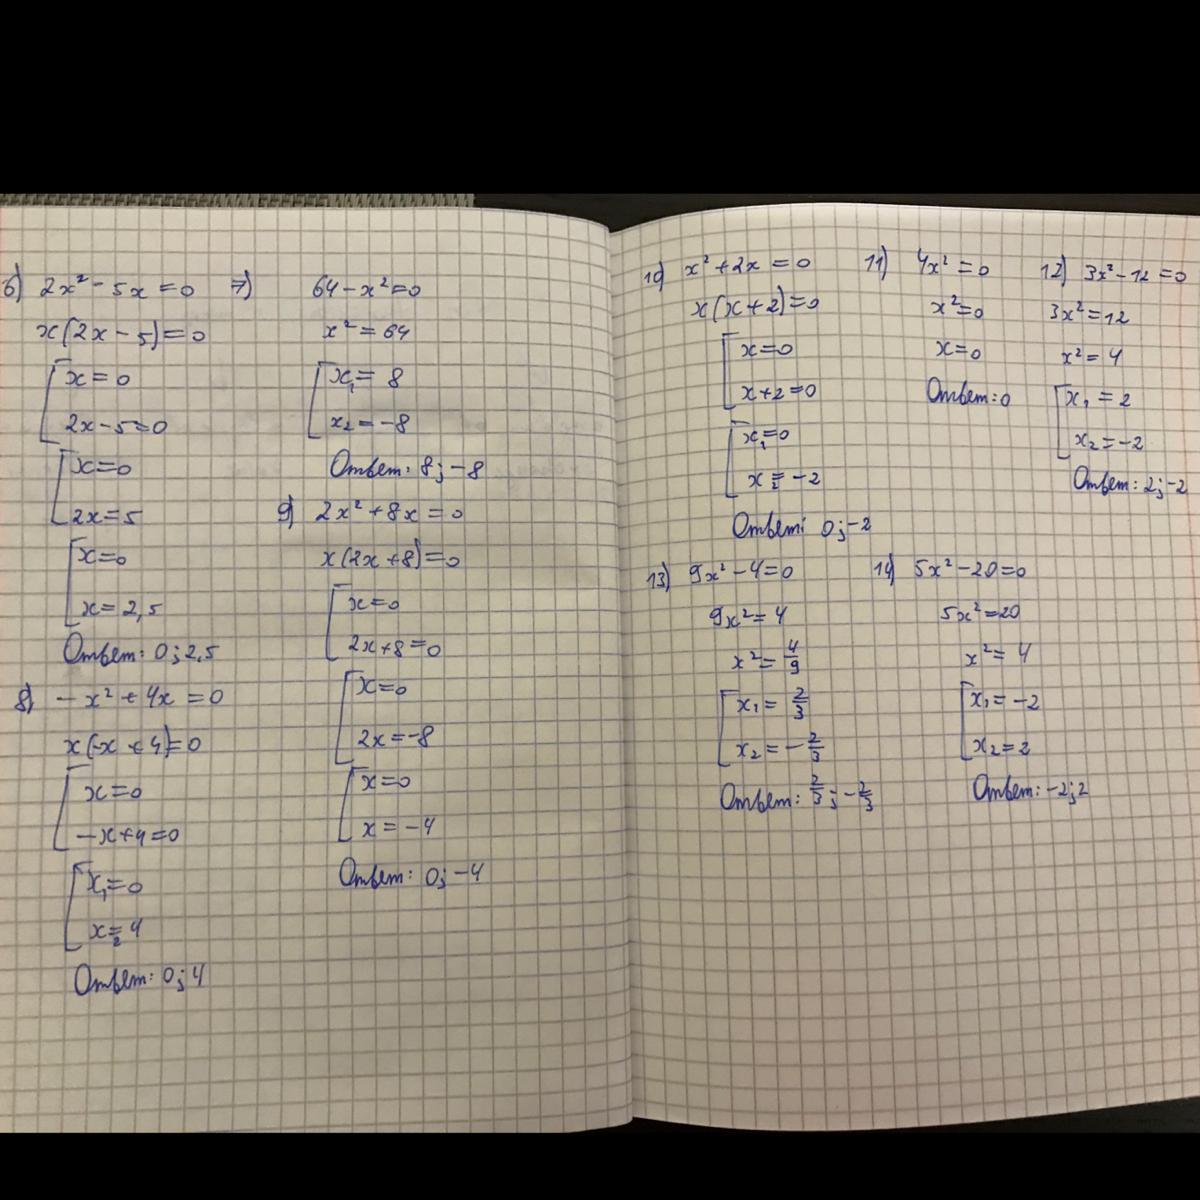 6) 2x² - 5x = 0
x(2x - 5) = 0
x = 0
2x - 5 = 0
x = 0
2x = 5
x = 0
x = 2,5
Ответ: 0; 2,5
7) 64 - x² = 0
x² = 64
x₁ = 8
x₂ = -8
Ответ: 8; -8
8) -x² + 4x = 0
x(-x + 4) = 0
x = 0
-x + 4 = 0
x₁ = 0
x₂ = 4
Ответ: 0; 4
9) 2x² + 8x = 0
x(2x + 8) = 0
x = 0
2x + 8 = 0
x = 0
2x = -8
x = 0
x = -4
Ответ: 0; -4
10) x² + 2x = 0
x(x + 2) = 0
x = 0
x + 2 = 0
x₁ = 0
x₂ = -2
Ответ: 0; -2
11) 4x² = 0
x² = 0
x = 0
Ответ: 0
12) 3x² - 12 = 0
3x² = 12
x² = 4
x₁ = 2
x₂ = -2
Ответ: 2; -2
13) 9x² - 4 = 0
9x² = 4
x² = 4/9
x₁ = 2/3
x₂ = -2/3
Ответ: 2/3; -2/3
14) 5x² - 20 = 0
5x² = 20
x² = 4
x₁ = -2
x₂ = 2
Ответ: -2; 2